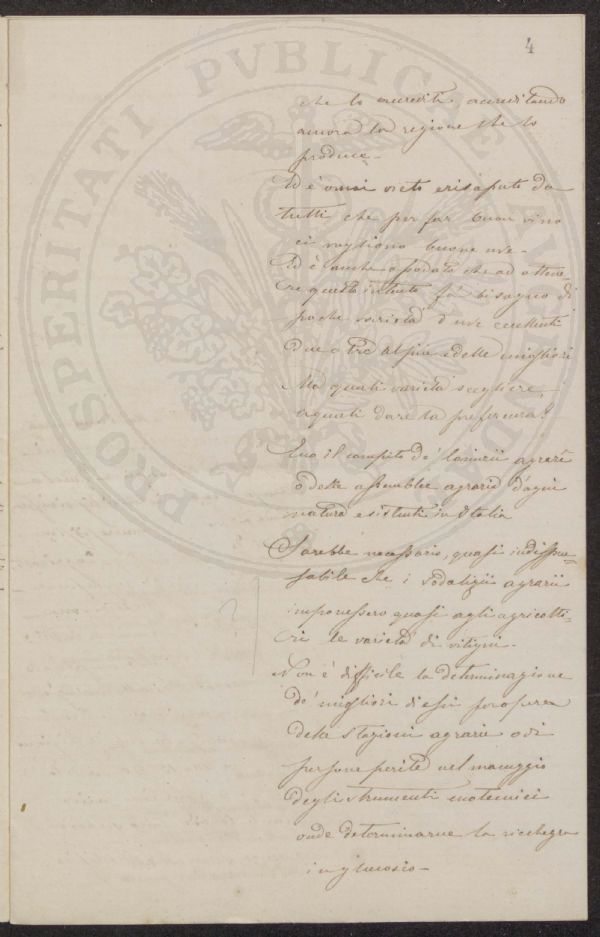 4
che lo accrediti, accreditando
ancora la regione che lo
produce -
Ed è omai vieto e risaputo da
tutti che per far buon vino
ci vogliono buone uve -
Ed è anche assodato che ad ottene
re questo intento fa bisogno di
poche varietà d'uve eccellenti
due o tre al più e delle migliori
Ma quali varietà scegliere,
a quali dare la preferenza?
il compito de' Comizii agrarî
o delle assemblee agrarie d'ogni
natura esistenti in Italia
Sarebbe necessario, quasi indispen=
sabile che i sodalizii agrarii
imponessero quasi agli agricolto=
ri le varietà di vitigni.
Non è difficile la determinazione
de' migliori di essi per opera
delle stazioni agrarie o di
persone perite nel maneggio
degli strumenti enotecnici
onde determinarne la ricchezza
in glucosio -
PROSPERITATI PVBLICAE